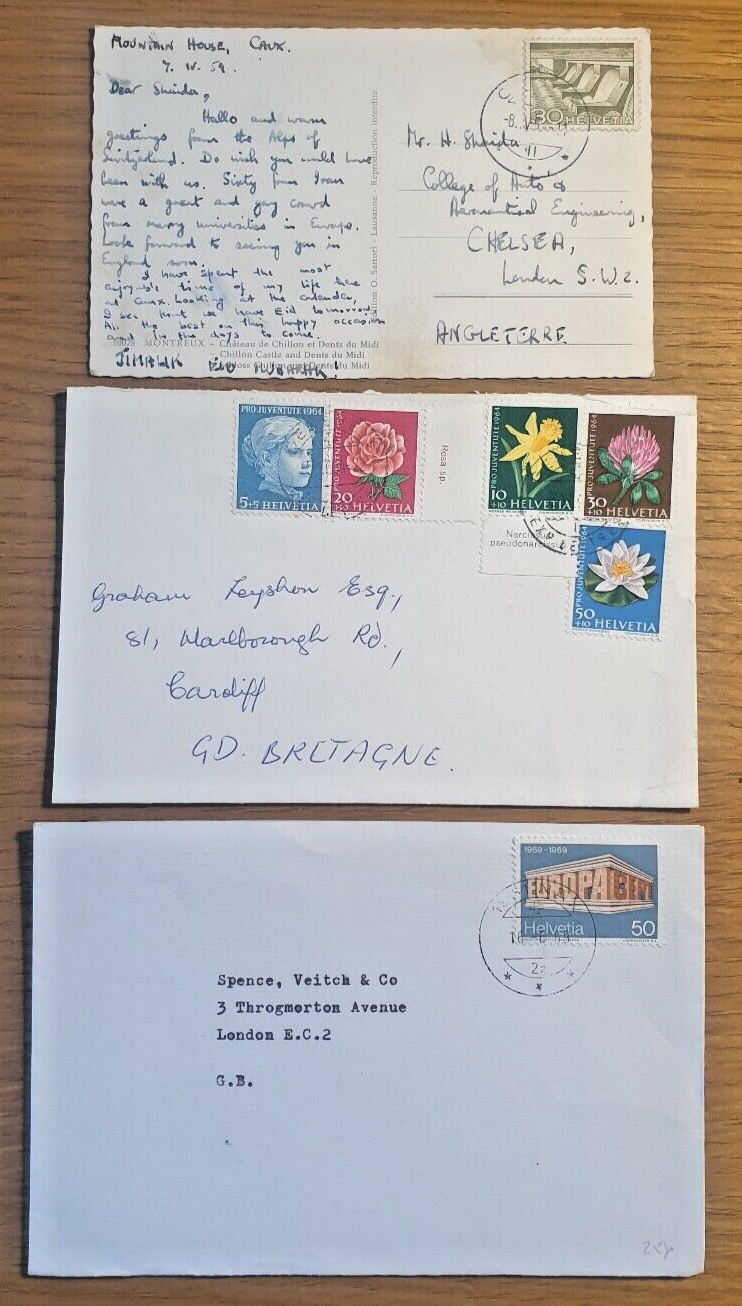 MOUNTAIN HOUSE, CAUX.
7. IV. 59.
Dear Sheida,
Hallo and warm
greetings from the Alps of
Switzerland. Do wish you could have
been with us. Sixty from Iran
were a great and gay crowd
from many universities in Europe.
Look forward to seeing you in
England soon.
I have spent the most
enjoyable time of my life here
at Caux. Looking at the calendar,
I see that we have Eid tomorrow.
All the best on this happy occasion
and in the days to come.
JIMAWK EID MUBARAK!
10028 MONTREUX – Château de Chillon et Dents du Midi
Chillon Castle and Dents du Midi
Schloss Chillon und Dents du Midi
Edition O. Sartori - Lausanne - Reproduction interdite
30 HELVETIA
-8.
11
Mr. H. Sheida
College of Auto &
Aeronautical Engineering,
CHELSEA,
London S.W.2.
ANGLETERRE
PRO JUVENTUTE 1964
5+5 HELVETIA
PRO JUVENTUTE 1964
20
+10 HELVETIA
Rosa sp.
PRO JUVENTUTE 1964
10
+10 HELVETIA
Narcissus
pseudonarcissus
PRO JUVENTUTE 1964
30
+10 HELVETIA
PRO JUVENTUTE 1964
50
+10 HELVETIA
Graham Leyshon Esq.,
81, Marlborough Rd.,
Cardiff
GD. BRETAGNE.
1959-1969
EUROPA CEPT
Helvetia 50
Spence, Veitch & Co
3 Throgmorton Avenue
London E.C.2
G.B.